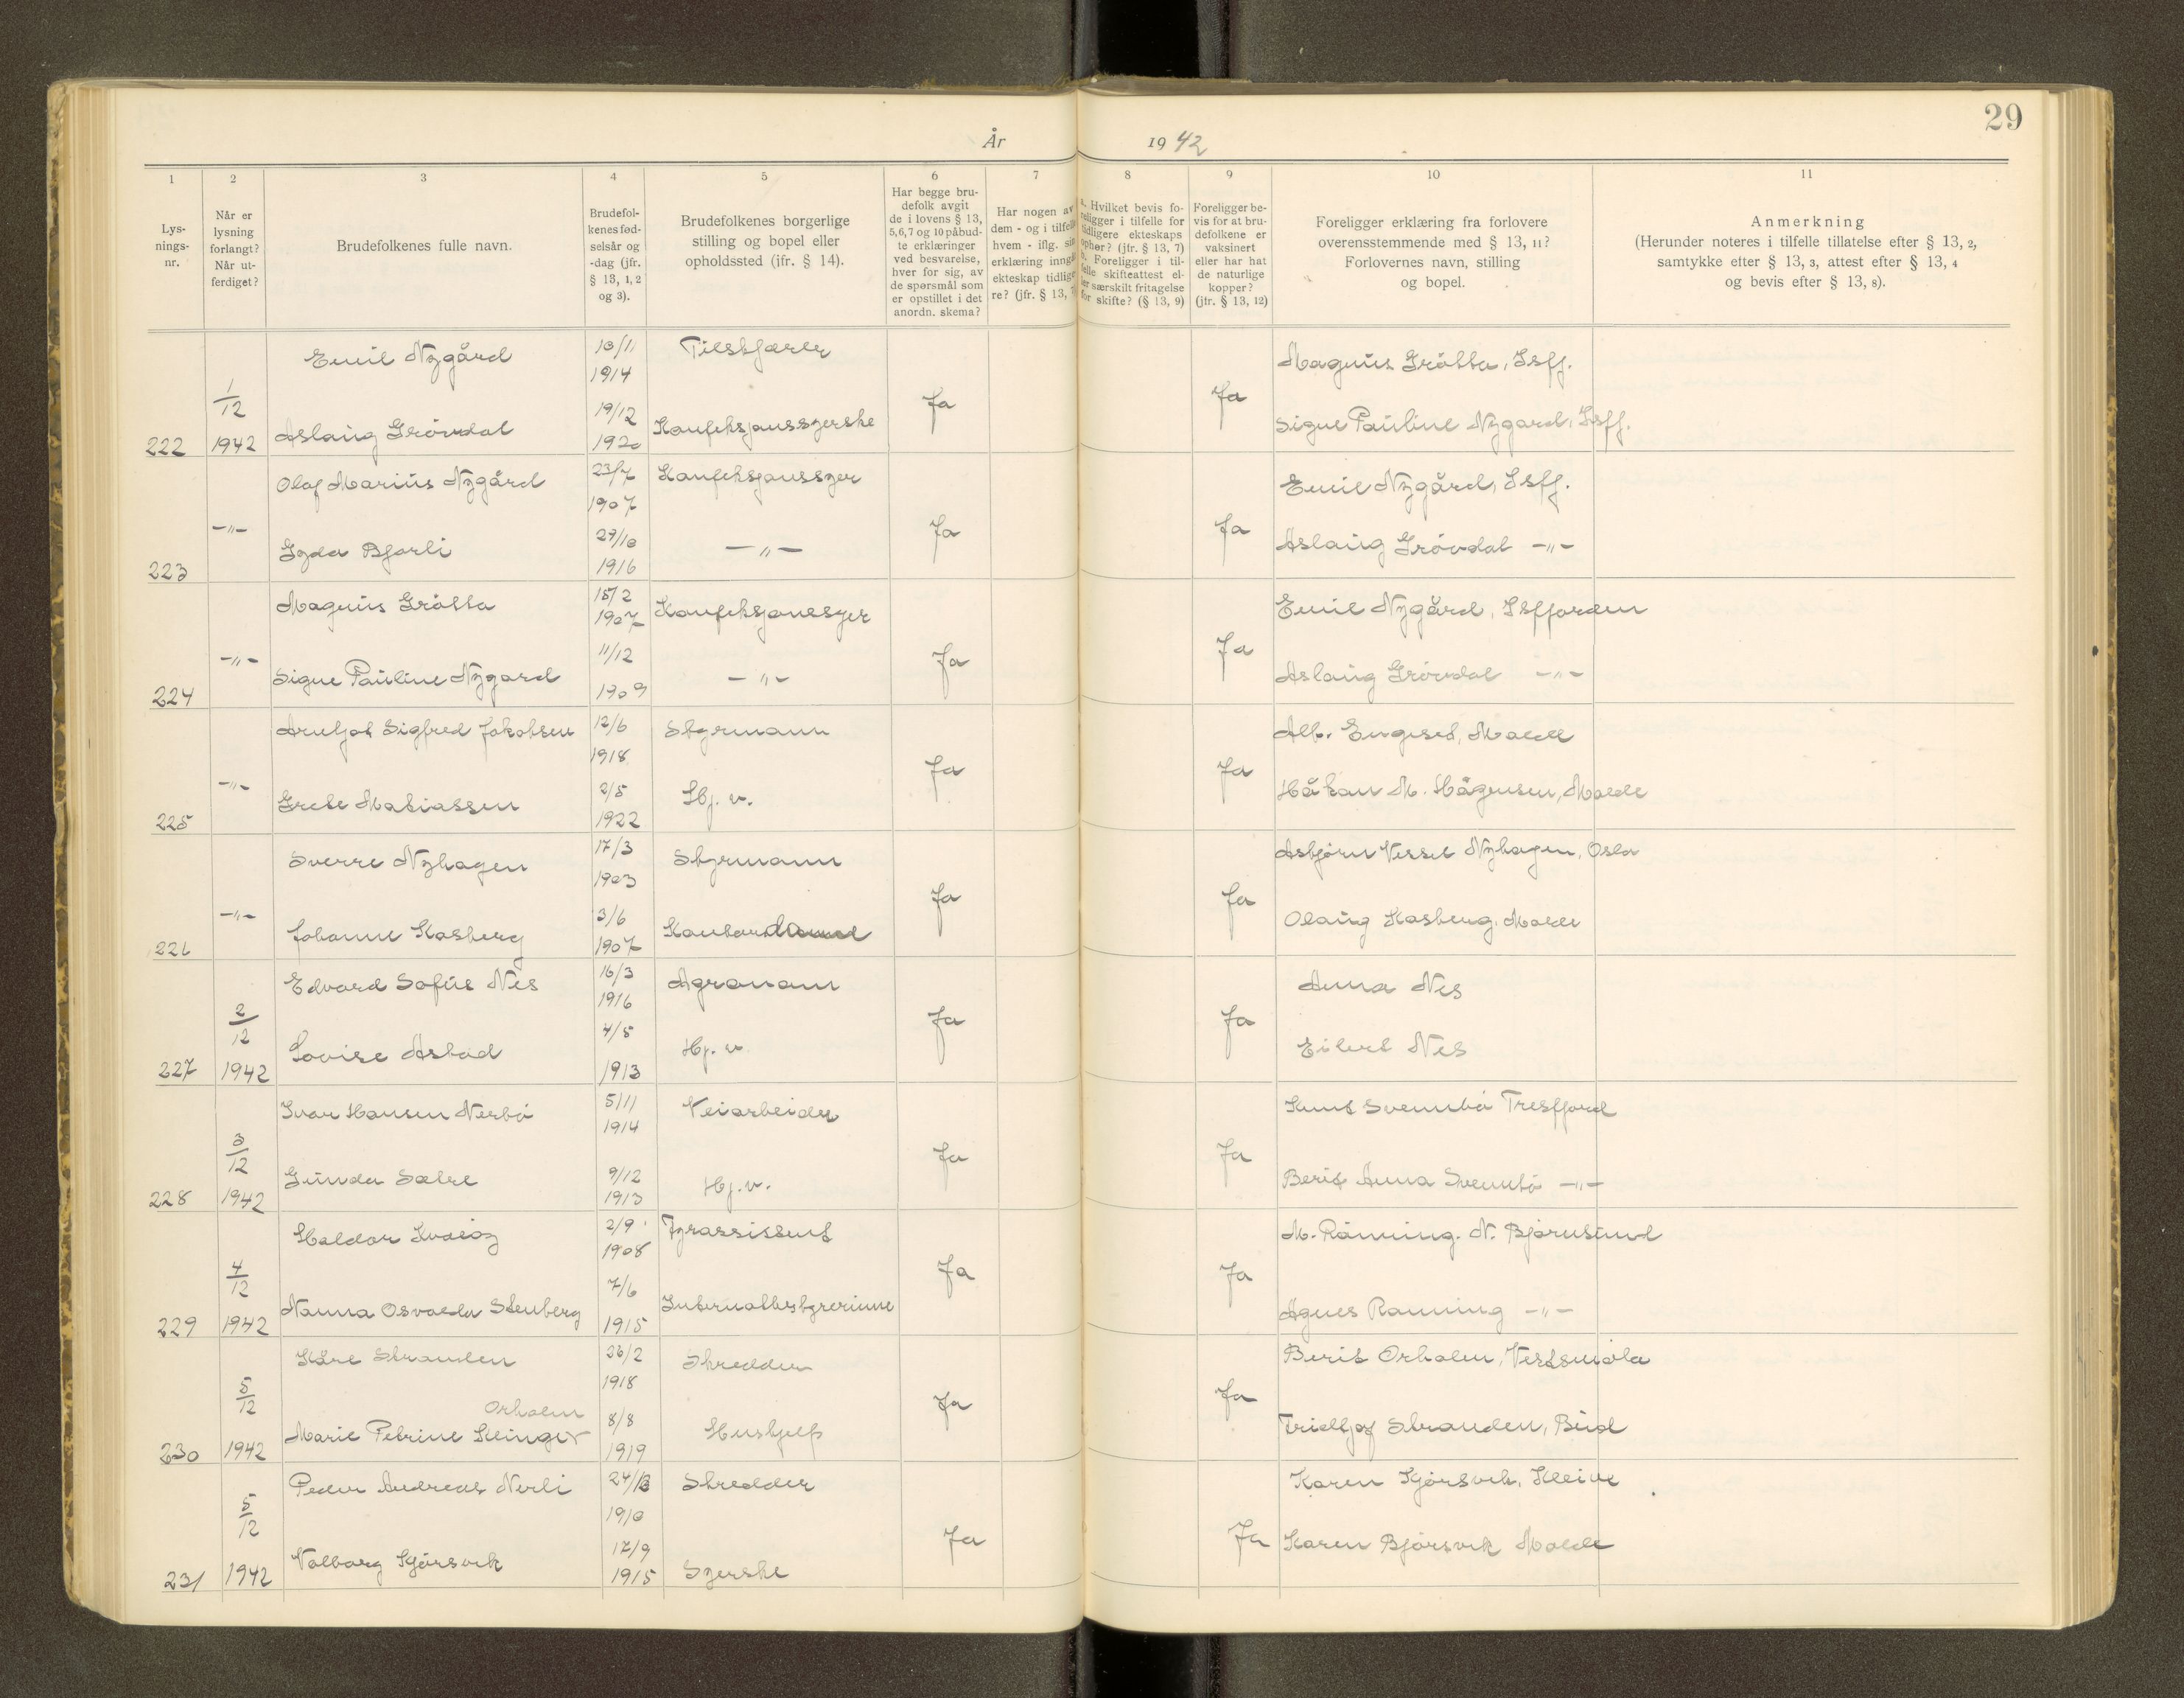 29
År 1942
1
2
3
4
5
6
7
8
9
10
11
Lys-
nings-
nr.
Når er
lysning
forlangt?
Når ut-
ferdiget?
Brudefolkenes fulle navn.
Brudefol-
kenes fød-
selsår og
-dag (jfr.
§ 13, 1, 2
og 3).
Brudefolkenes borgerlige
stilling og bopel eller
opholdssted (jfr. § 14).
Har begge bru-
defolk avgit
de i lovens § 13,
5,6,7 og 10 påbud-
te erklæringer
ved besvarelse,
hver for sig, av
de spørsmål som
er opstillet i det
anordn. skema?
Har nogen av
dem - og i tilfelle
hvem - iflg. sin
erklæring inngå
ekteskap tidlige
re? (jfr. § 13, 7
a. Hvilket bevis fo-
religger i tilfelle for
tidligere ekteskaps
opher? (jfr. § 13, 7)
b. Foreligger i til-
felle skifteattest el-
ler særskilt fritagelse
for skifte? (§ 13, 9)
Foreligger be-
vis for at bru-
defolkene er
vaksinert
eller har hat
de naturlige
kopper?
(jfr. § 13, 12)
Foreligger erklæring fra forlovere
overensstemmende med § 13, 11?
Forlovernes navn, stilling
og bopel.
Anmerkning
(Herunder noteres i tilfelle tillatelse efter § 13, 2,
samtykke efter § 13, 3, attest efter § 13, 4
og bevis efter § 13, 8).
222
1/12
1942
Emil Nygård
10/11
1914
Tilskjærer
Aslaug Grøvdal
19/12
1920
Konfeksjonssyerske
Ja
Ja
Magnus Grøtta, Isfj.
Signe Pauline Nygard, Isfj.
223
-"-
Olaf Marius Nygård
23/7
1907
Konfeksjonssyer
Gyda Bjørli
27/10
1916
-"-
Ja
Ja
Emil Nygård, Isfj.
Aslaug Grøvdal -"-
224
-"-
Magnus Grøtta
15/2
1907
Konfeksjonssyer
Signe Pauline Nygard
11/12
1909
-"-
Ja
Ja
Emil Nygård, Isfjorden
Aslaug Grøvdal -"-
225
-"-
Arnljot Sigfred Jakobsen
12/6
1918
Styrmann
Grete Matiassen
2/5
1922
Hj. v.
Ja
Ja
Alb. Engeset, Molde
Håkon M. Hågensen, Molde
226
-"-
Sverre Nyhagen
17/3
1903
Styrmann
Johanne Kasberg
3/6
1907
Kontordame
Ja
Ja
Asbjørn Vessel Nyhagen, Oslo
Olaug Kasberg, Molde
227
2/12
1942
Edvard Sofus Nes
16/3
1916
Agronom
Lovise Astad
4/5
1913
Hj. v
Ja
Ja
Anna Nes
Eilert Nes
228
3/12
1942
Ivar Hansen Nerbø
5/11
1914
Veiarbeider
Gunda Sætre
9/12
1913
Hj. v.
Ja
Ja
Knut Svemmbø Tresfjord
Berit Anna Svemmbø -"-
229
4/12
1942
Haldor Kvaløy
2/9
1908
Fyrassistent
Nanna Osvalda Stenberg
7/6
1915
Internatbestyrerinne
Ja
Ja
M. Rønning. N. Bjørnsund
Agnes Rønning -"-
230
5/12
1942
Kåre Stranden
26/2
1918
Skredder
Orholm
Marie Petrine Klinger
8/8
1919
Hushjelp
Ja
Ja
Berit Orholm, Vestsmøla
Fridtjof Stranden, Bud
231
5/12
1942
Peder Andreas Nerli
1910
Skredder
Valborg Gjørsvik
17/9
1915
Syerske
Ja
Ja
Karen Gjørsvik, Kleive
Karen Bjørsvik Molde